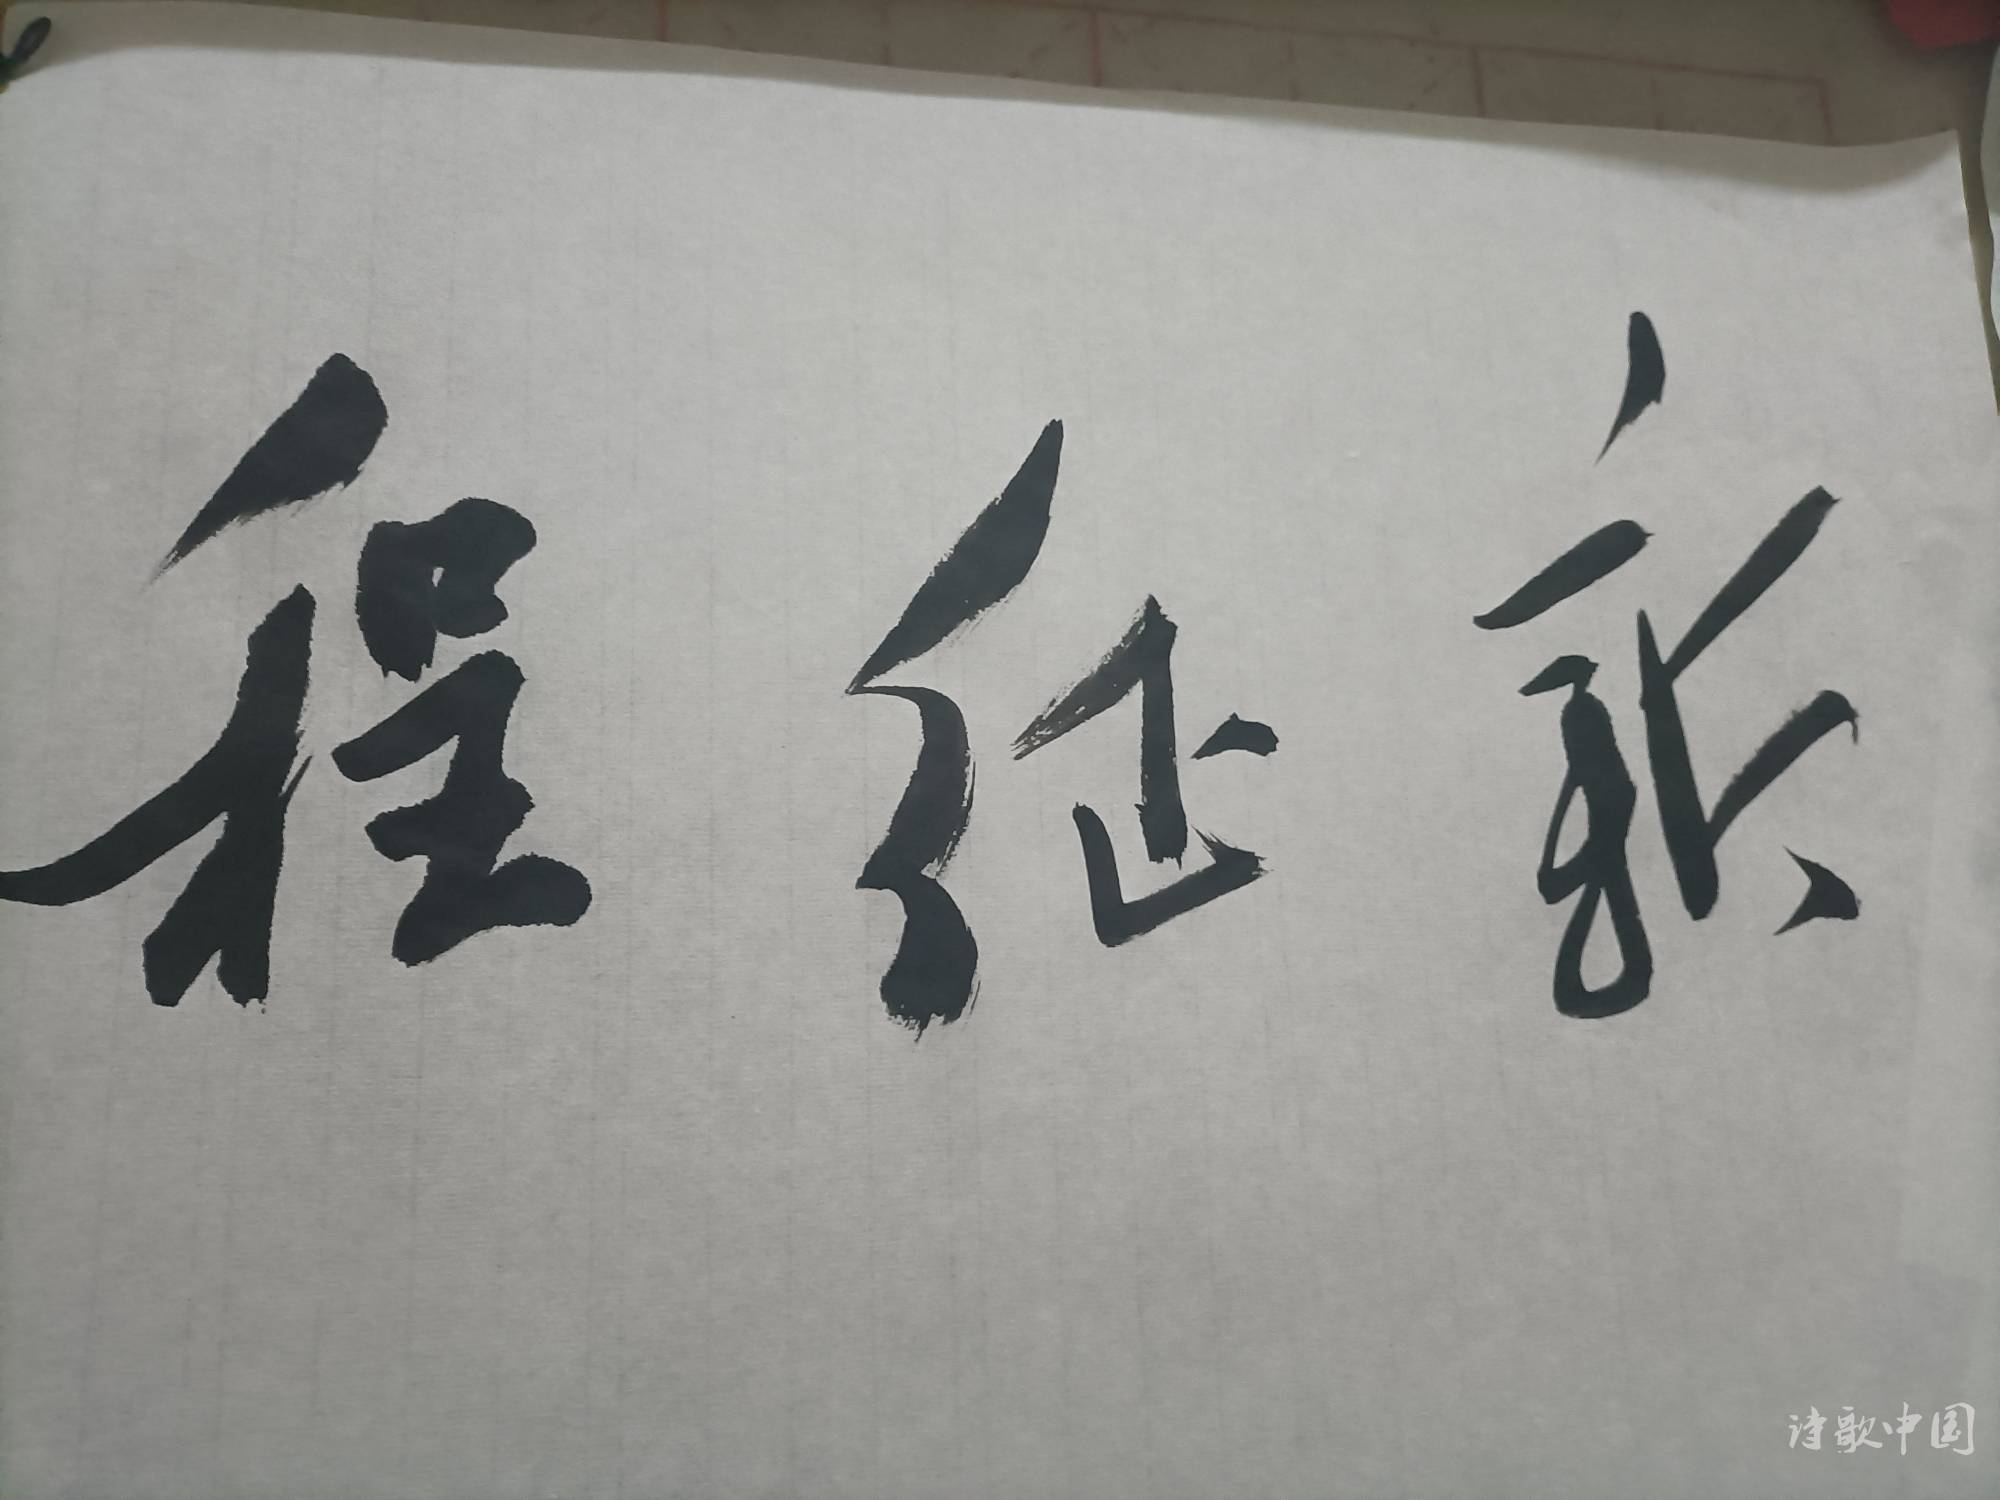 新征程
诗歌中国